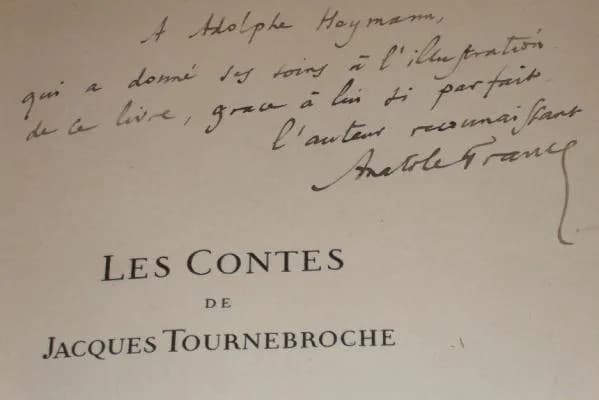 A Adolphe Heymann,
qui a donné ses soins à l'illustration
de ce livre, grace à lui si parfait
l'auteur reconnaissant
Anatole France
LES CONTES
DE
JACQUES TOURNEBROCHE